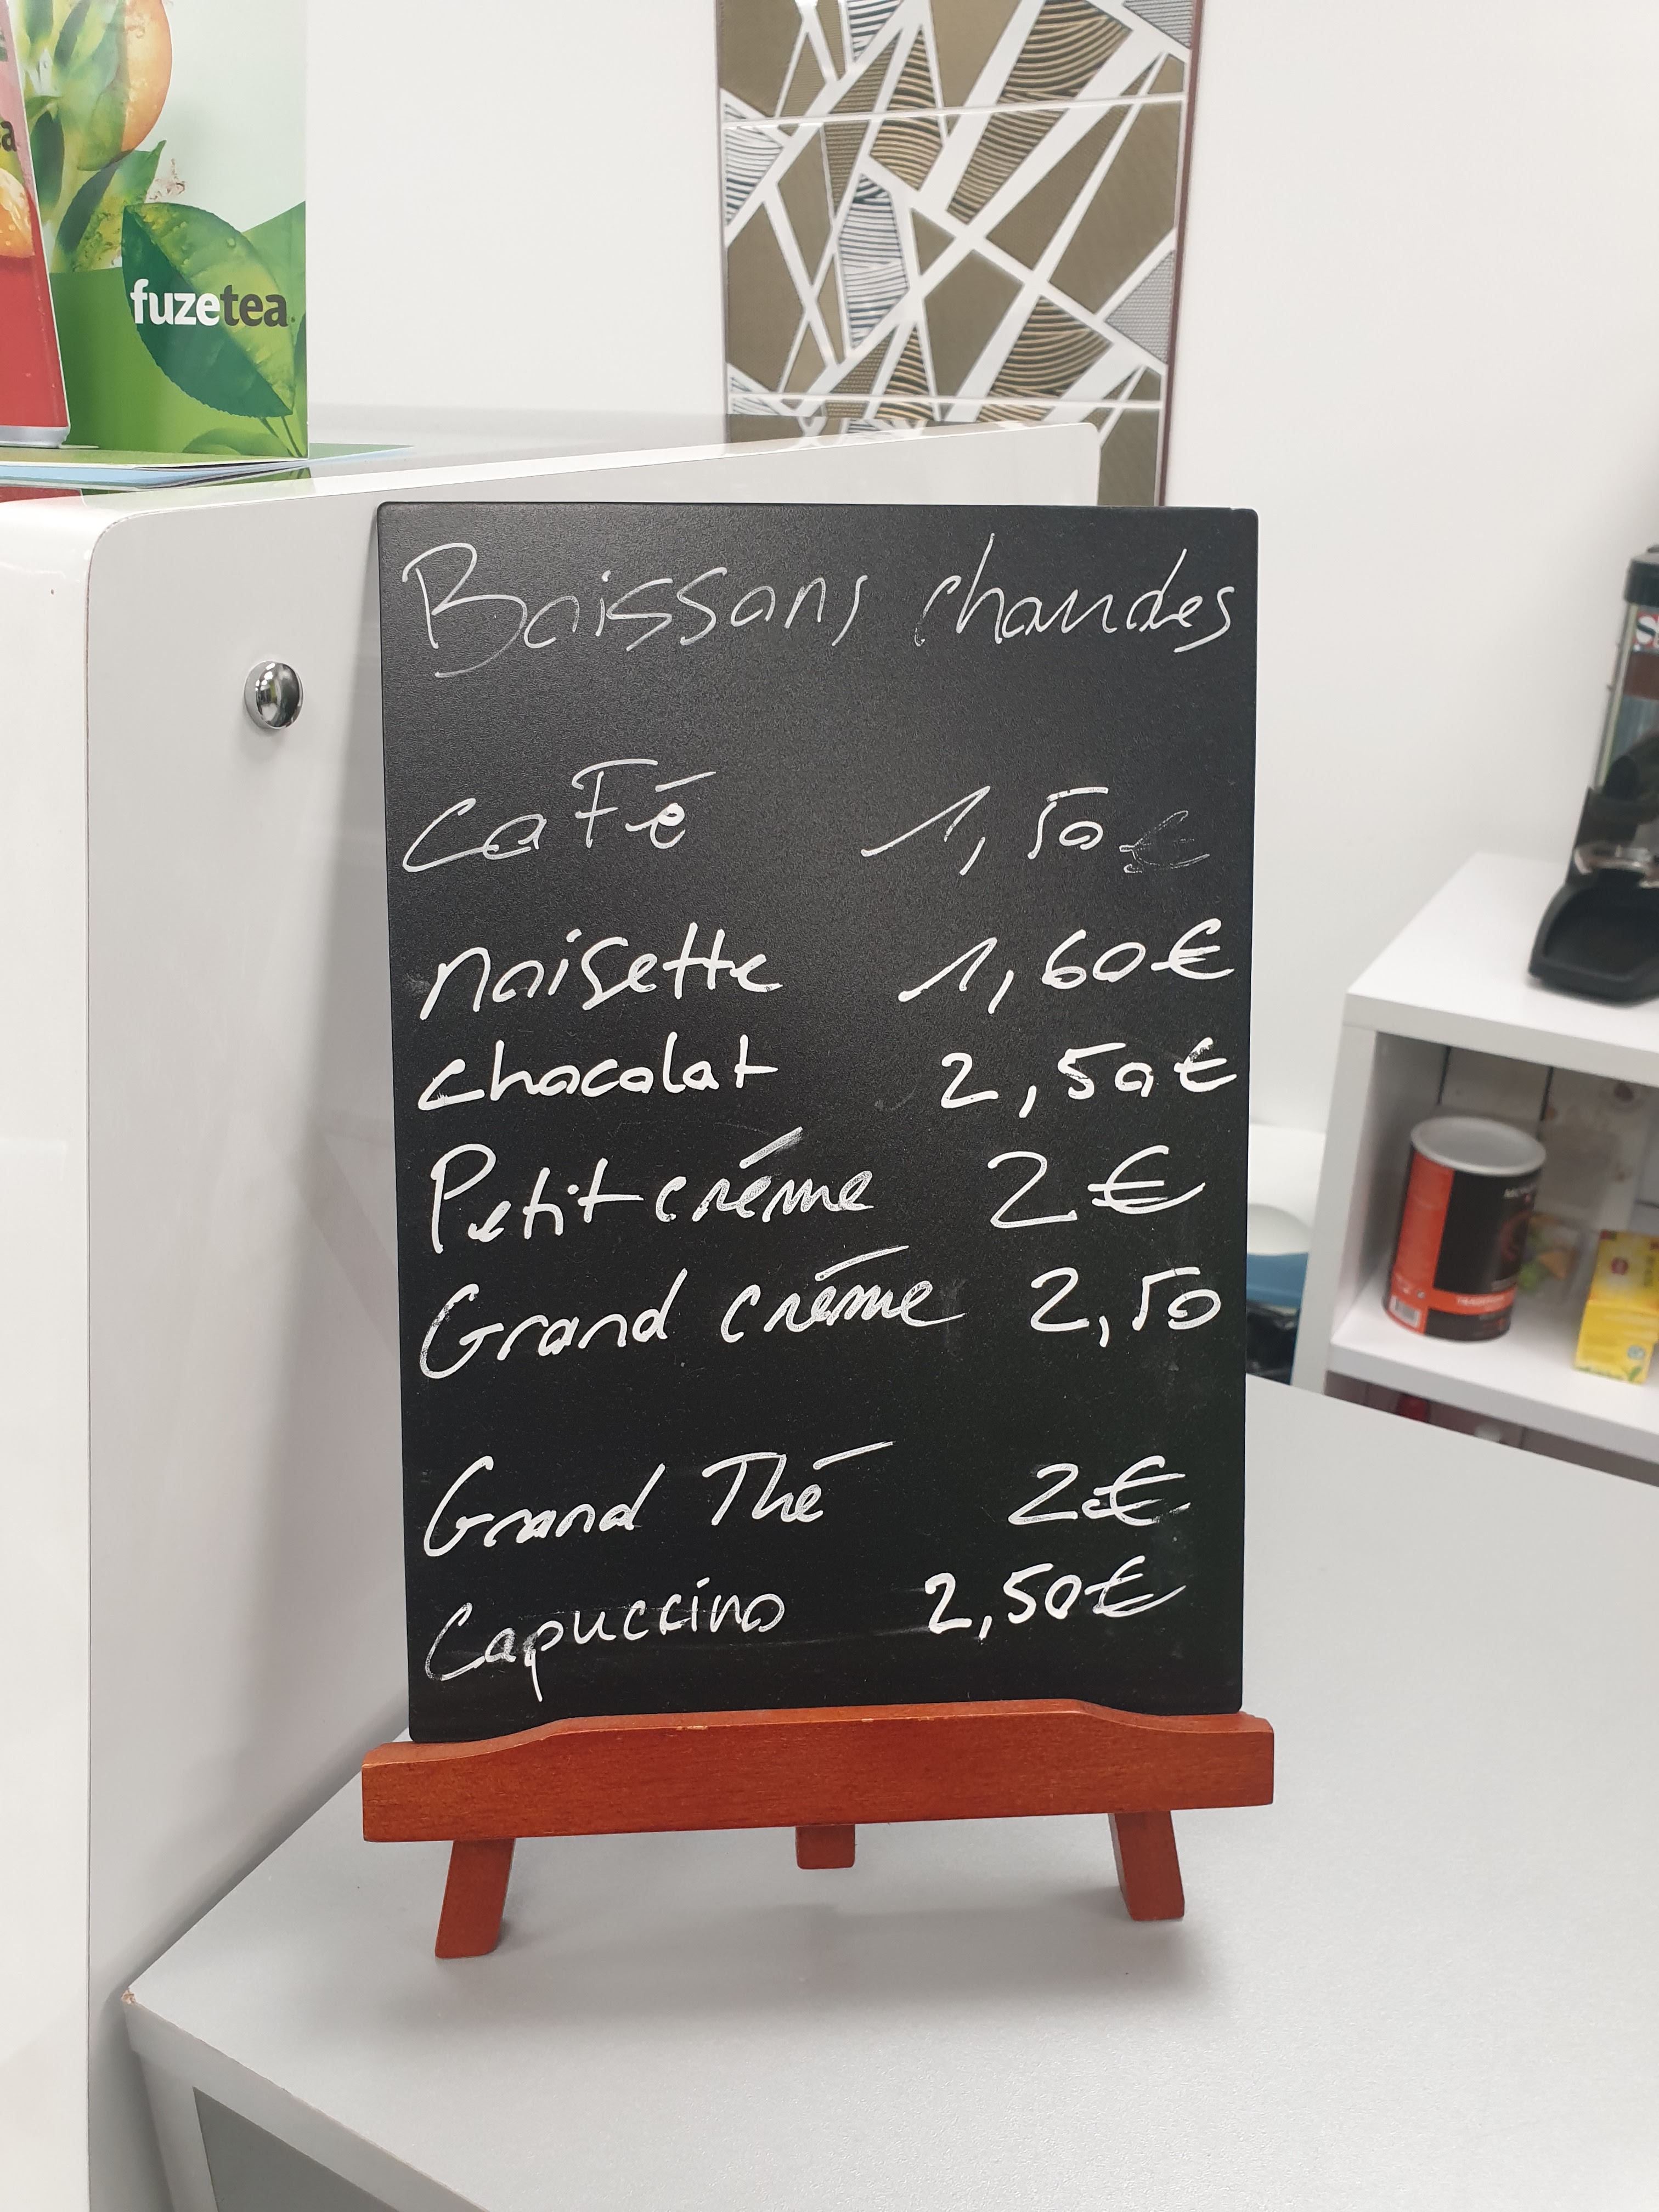 fuzetea
Boissons chaudes
café 1,50 €
noisette 1,60 €
chocolat 2,50 €
Petit créme 2 €
Grand créme 2,50
Grand Thé 2 €
Capuccino 2,50 €